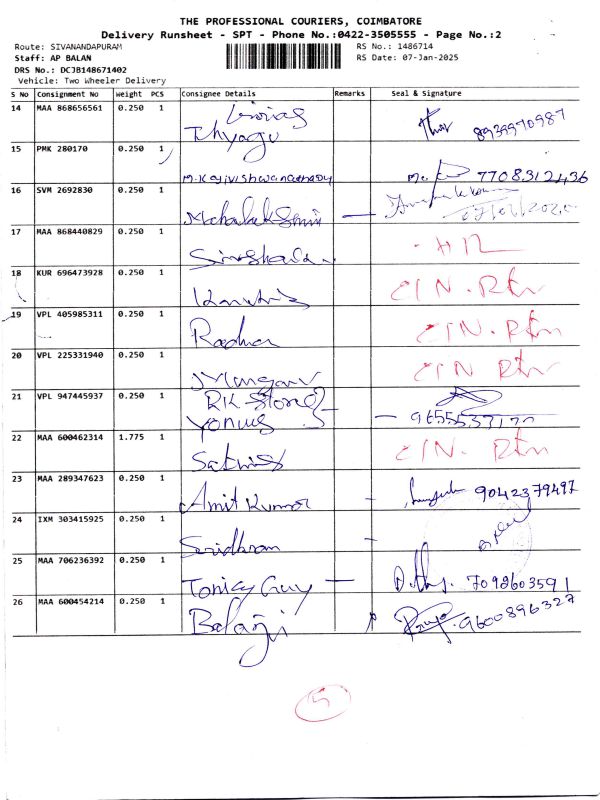 THE PROFESSIONAL COURIERS, COIMBATORE
Delivery Runsheet - SPT - Phone No.:0422-3505555 - Page No.:2
Route: SIVANANDAPURAM RS No.: 1486714
Staff: AP BALAN RS Date: 07-Jan-2025
DRS No.: DCJB148671402
Vehicle: Two Wheeler Delivery
S No Consignment No Weight PCS Consignee Details Remarks Seal & Signature
14 MAA 868656561 0.250 1 Thyagu 8939970987
15 PMK 280170 0.250 1 7708312436
16 SVM 2692830 0.250 1 Mahalakshmi
17 MAA 868440829 0.250 1
18 KUR 696473928 0.250 1 CIN. Rtn
19 VPL 405985311 0.250 1 Radha CIN. Rtn
20 VPL 225331940 0.250 1 Murugan CIN Rtn
21 VPL 947445937 0.250 1 RK Store
22 MAA 600462314 1.775 1 CIN. Rtn
23 MAA 289347623 0.250 1 Amit Kumar 9042379497
24 IXM 303415925 0.250 1 Sridharan
25 MAA 706236392 0.250 1 7092603591
26 MAA 600454214 0.250 1 Balaji 9600896327
5